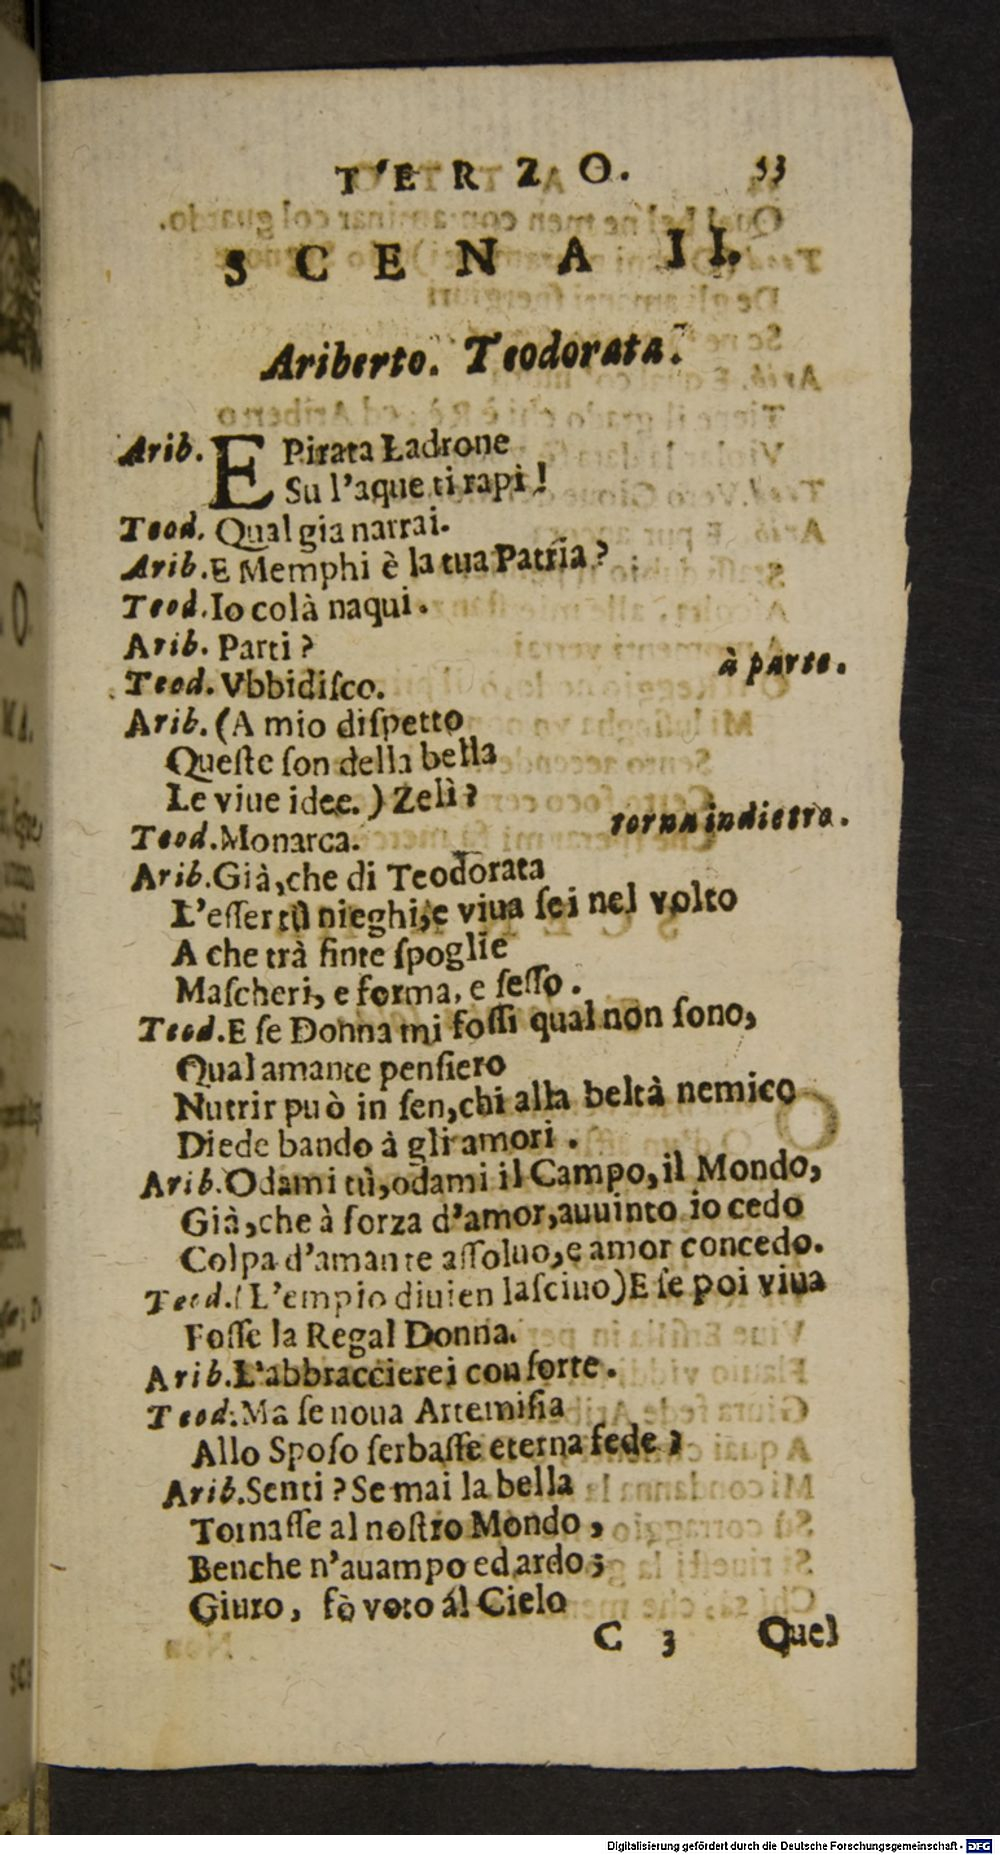 TERZO. 53
SCENA II.
Ariberto. Teodorata.
Arib. E Pirata Ladrone
Su l'aque ti rapi!
Teod. Qual gia narrai.
Arib. E Memphi è la tua Patria?
Teod. Io colà naqui.
Arib. Parti? à parte.
Teod. Vbbidiſco.
Arib. (A mio diſpetto
Queſte ſon della bella
Le viue idee.) Zelì?
Teod. Monarca. torna indietro.
Arib. Già, che di Teodorata
L'eſſer tù nieghi, e viua ſei nel volto
A che trà finte ſpoglie
Maſcheri, e forma, e ſeſſo.
Teod. E ſe Donna mi foſſi qual non ſono,
Qual amante penſiero
Nutrir può in ſen, chi alla beltà nemico
Diede bando à gli amori.
Arib. Odami tù, odami il Campo, il Mondo,
Già, che à forza d'amor, auuinto io cedo
Colpa d'amante aſſoluo, e amor concedo.
Teod. (L'empio diuien laſciuo) E ſe poi viua
Foſſe la Regal Donna.
Arib. L'abbraccierei conſorte.
Teod. Mà ſe noua Artemiſia
Allo Spoſo ſerbaſſe eterna fede?
Arib. Senti? Se mai la bella
Tornaſſe al noſtro Mondo,
Benche n'auampo ed ardo;
Giuro, fò voto ál Cielo
C 3 Quel
Digitalisierung gefördert durch die Deutsche Forschungsgemeinschaft - DFG